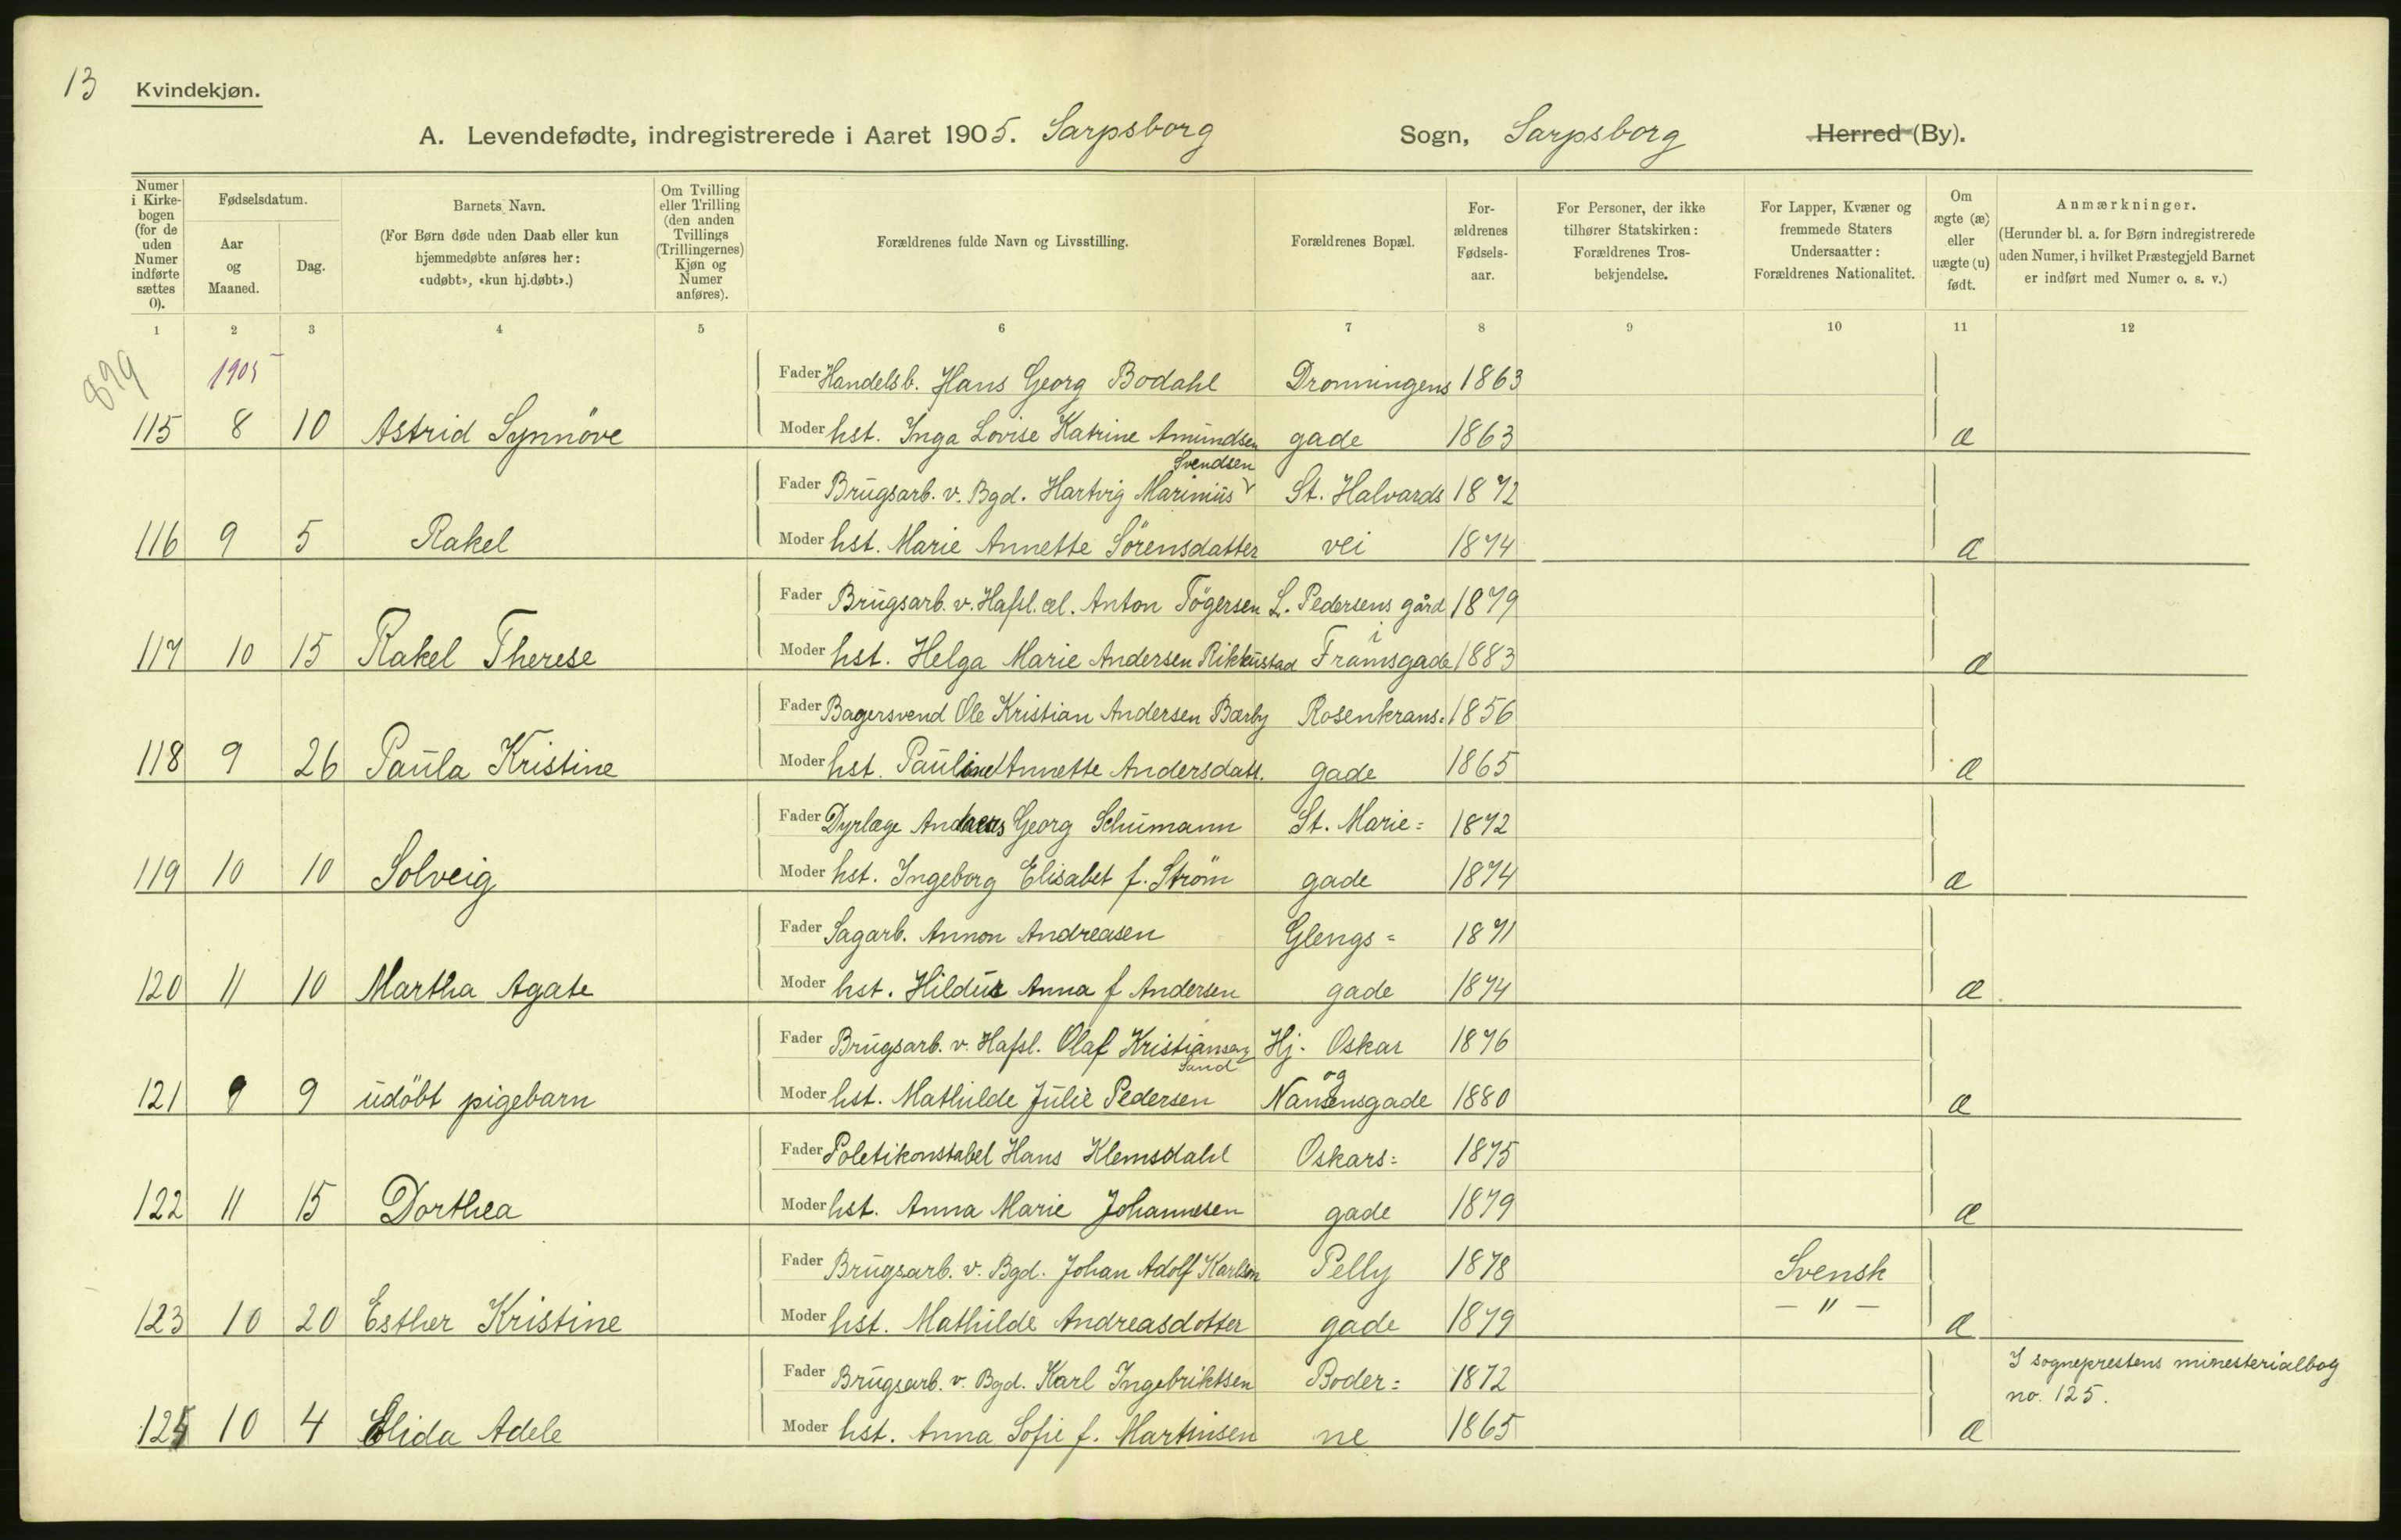 13 Kvindekjøn.
A. Levendefødte, indregistrerede i Aaret 1905. Sarpsborg Sogn, Sarpsborg Herred (By).
Numer i Kirkebogen (for de uden Numer indførte sættes 0).
Fødselsdatum.
Aar og Maaned.
Dag.
Barnets Navn.
(For Børn døde uden Daab eller kun hjemmedøbte anføres her: «udøbt», «kun hj.døbt».)
Om Tvilling eller Trilling (den anden Tvillings (Trillingernes) Kjøn og Numer anføres).
Forældrenes fulde Navn og Livsstilling.
Forældrenes Bopæl.
For-ældrenes Fødsels-aar.
For Personer, der ikke tilhører Statskirken: Forældrenes Tros-bekjendelse.
For Lapper, Kvæner og fremmede Staters Undersaatter: Forældrenes Nationalitet.
Om ægte (æ) eller uægte (u) født.
Anmærkninger.
(Herunder bl. a. for Børn indregistrerede uden Numer, i hvilket Præstegjeld Barnet er indført med Numer o. s. v.)
1 2 3 4 5 6 7 8 9 10 11 12
899 1905
Fader Handelsb. Hans Georg Bodahl Dronningens 1863
115 8 10 Astrid Synnöve Moder hst. Inga Lovise Katrine Amundsen gade 1863 æ
Svendsen
Fader Brugsarb. v. Bgd. Hartvig Marinius St. Halvards 1872
116 9 5 Rakel Moder hst. Marie Annette Sörensdatter vei 1874 æ
Fader Brugsarb. v. Hafsl. æl. Anton Tögersen L. Pedersens gård 1879
i
117 10 15 Rakel Therese Moder hst. Helga Marie Andersen Rikkustad Framsgade 1883 æ
Fader Bagersvend Ole Kristian Andersen Bærby Rosenkrans= 1856
118 9 26 Paula Kristine Moder hst. Pauline Annette Andersdatt. gade 1865 æ
Fader Dyrlæge Andreas Georg Schumann St. Marie= 1872
119 10 10 Solveig Moder hst. Ingeborg Elisabet f. Ström gade 1874 æ
Fader Sagarb. Annon Andreasen Glengs= 1871
120 11 10 Martha Agate Moder hst. Hildur Anna f Andersen gade 1874 æ
Fader Brugsarb. v. Hafsl. Olaf Kristiansen Hj. Oskar 1876
Sand og
121 9 9 udöbt pigebarn Moder hst. Mathilde Julie Pedersen Nansensgade 1880 æ
Fader Poletikonstabel Hans Klemsdahl Oskars= 1875
122 11 15 Dorthea Moder hst. Anna Marie Johannesen gade 1879 æ
Fader Brugsarb. v. Bgd. Johan Adolf Karlson Pelly 1878 Svensk
123 10 20 Esther Kristine Moder hst. Mathilde Andreasdotter gade 1879 — " — æ
Fader Brugsarb. v. Bgd. Karl Ingebriktsen Boder= 1872 I sogneprestens minesterialbog
no. 125.
125 10 4 Elida Adele Moder hst. Anna Sofie f. Martinsen ne 1865 æ